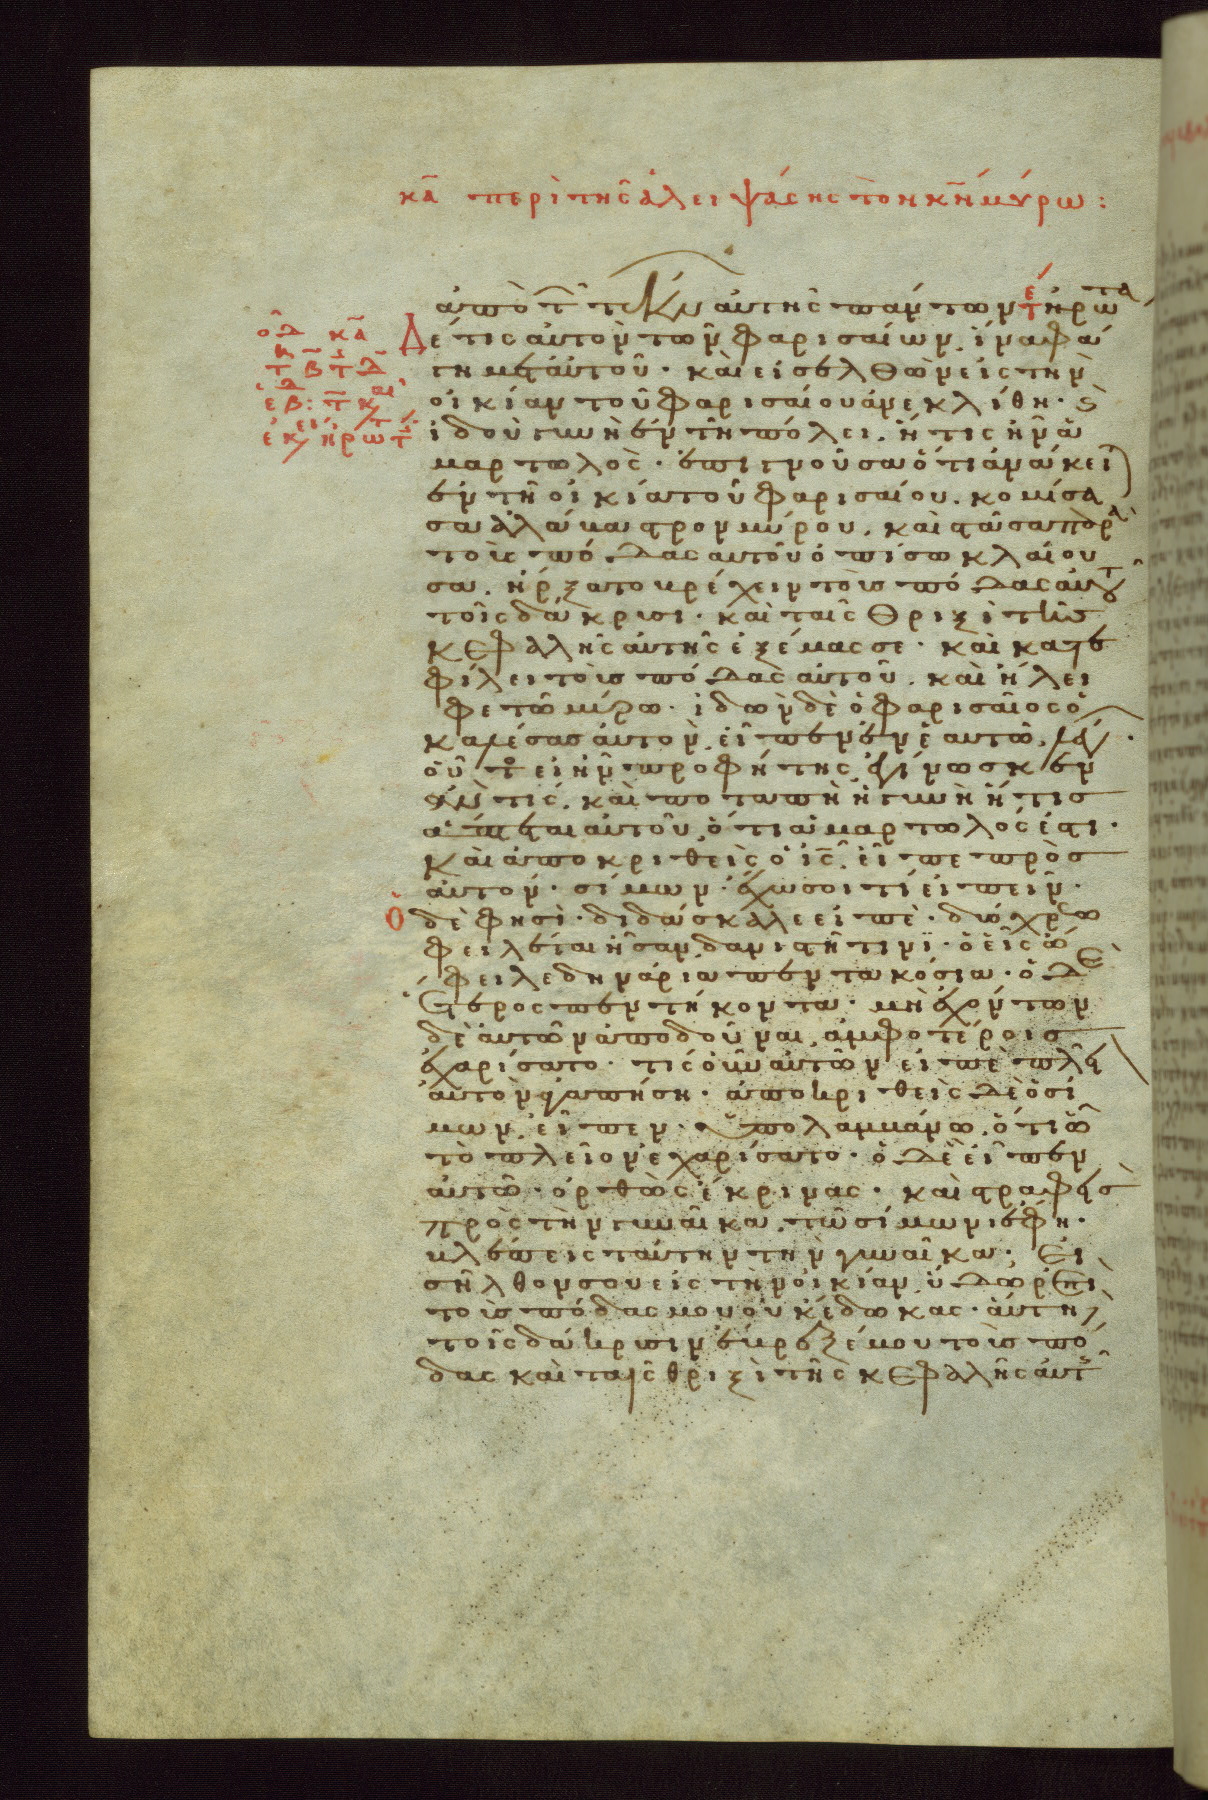 κα̅ περὶ τῆς ἀλειψάσης τὸν κ̅ν μύρω:
ἀπὸ τῶν τέκνων αὐτῆς πάντων. ἠρώτα
Δέ τις αὐτὸν τῶν Φαρισαίων, ἵνα φά
γη μετ αὐτοῦ. καὶ εἰσελθὼν εἰς τὴν
οἰκίαν τοῦ Φαρισαίου ἀνεκλίθη. καὶ
ἰδοὺ γυνὴ ἐν τῆ πόλει, ἥτις ἦν ἁ
μαρτωλὸς. ἐπιγνοῦσα ὅτι ἀνάκειται
ἐν τῆ οἰκία τοῦ Φαρισαίου. κομίσα
σα ἀλάβαστρον μύρου, καὶ στᾶσα παρὰ
τοὺς πόδας αὐτοῦ ὀπίσω κλαίου
σα, ἤρξατο βρέχειν τοὺς πόδας αὐτοῦ
τοῖς δάκρυσι. καὶ ταῖς θριξὶ τῆς
κεφαλῆς αὐτῆς ἐξέμασσε. καὶ κατε
φίλει τοὺς πόδας αὐτοῦ. καὶ ἤλει
φε τῶ μύρω. ἰδὼν δὲ ὁ φαρισαῖος ὁ
καλέσας αὐτὸν, εἶπεν ἐν ἑαυτῶ, λέγων.
οὗτος εἰ ἦν προφήτης, ἐγίνωσκεν
ἂν τίς, καὶ ποταπὴ ἡ γυνὴ ἥτις
ἅπτεται αὐτοῦ, ὅτι ἁμαρτωλός ἐστι.
καὶ ἀποκριθεὶς ὁ ι̅ς̅, εἶπε πρὸς
αὐτόν. σίμων. ἔχω σοι τί εἰπεῖν.
Ὁ δὲ φησὶ. διδάσκαλε εἰπὲ. δύο χρεω
φειλέται ἦσαν δανιστῆ τινὶ. ὁ εἷς ὤ
φειλε δηνάρια πεντακόσια. ὁ δὲ
ἕτερος πεντήκοντα. μὴ ἐχόντων
δὲ αὐτῶν ἀποδοῦναι, ἀμφοτέροις
ἐχαρίσατο. τίς οὖν αὐτῶν εἰπὲ πλεῖον
αὐτὸν ἀγαπήση. ἀποκριθεὶς δὲ ὁ σί
μων, εἶπεν. ὑπολαμβάνω, ὅτι ὧ
τὸ πλεῖον ἐχαρίσατο. ὁ δὲ εἶπεν
αὐτῶ. ὀρθῶς ἔκρινας. καὶ στραφεὶς
πρὸς τὴν γυναῖκα, τῶ σίμωνι ἔφη.
βλέπεις ταύτην τὴν γυναῖκα; εἰ
σῆλθον σου εἰς τὴν οἰκίαν, ὕδωρ ἐπὶ
τοὺς πόδας μου οὐκ ἔδωκας. αὕτη
τοῖς δάκρυσιν ἔβρεξέ μου τοὺς πό
δας καὶ ταῖς θριξὶ τῆς κεφαλῆς αὐτῆς